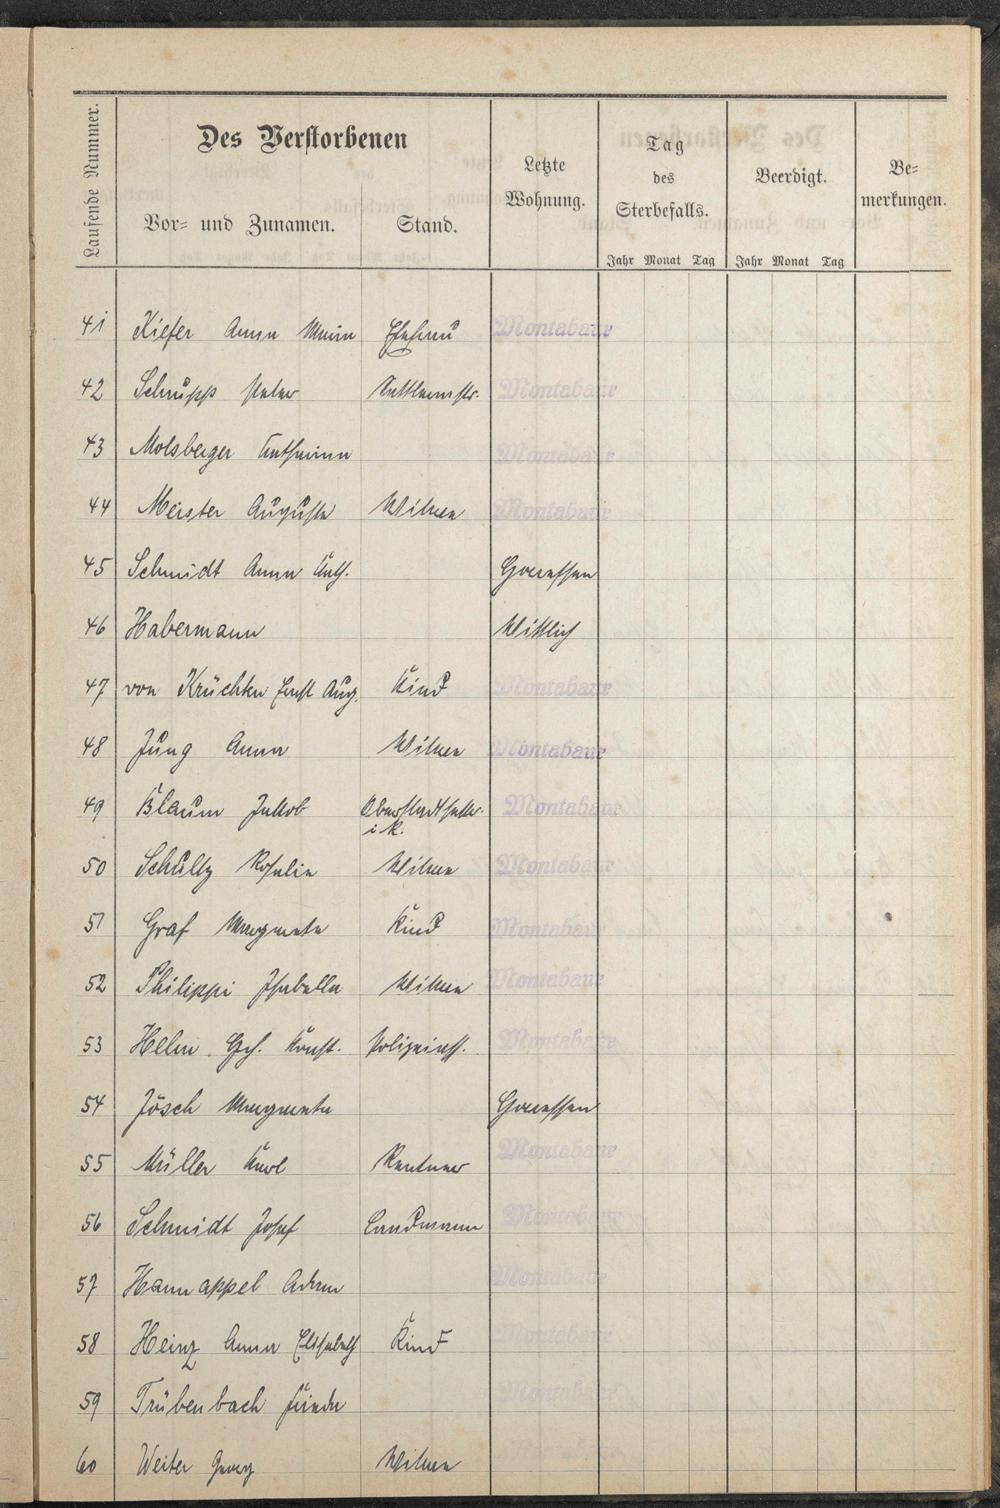 Laufende Nummer.
Des Verstorbenen
Vor= und Zunamen.
Stand.
Letzte
Wohnung.
Tag
des
Sterbefalls.
Beerdigt.
Be=
merkungen.
Jahr Monat Tag
Jahr Monat Tag
41 Kiefer Anna Maria Ehefrau Montabaur
42 Schrupp Peter Sattlermstr. Montabaur
43 Molsberger Katharina Montabaur
44 Meister Auguste Witwe Montabaur
45 Schmidt Anna Kath.
46 Habermann Wittlich
47 von Krüchten Ernst Aug. Kind Montabaur
48 Jung Anna Witwe Montabaur
49 Blaum Jakob Montabaur
50 Schultz Rosalie Witwe Montabaur
51 Graf Margareta Kind Montabaur
52 Philippi Isabella Witwe Montabaur
53 Helm Montabaur
54 Jösch Margareta
55 Müller Karl Rentner Montabaur
56 Schmidt Josef Landmann Montabaur
57 Hannappel Adam Montabaur
58 Heinz Anna Elisabeth Kind Montabaur
59 Trübenbach Frieda Montabaur
60 Weiter Georg Witwe